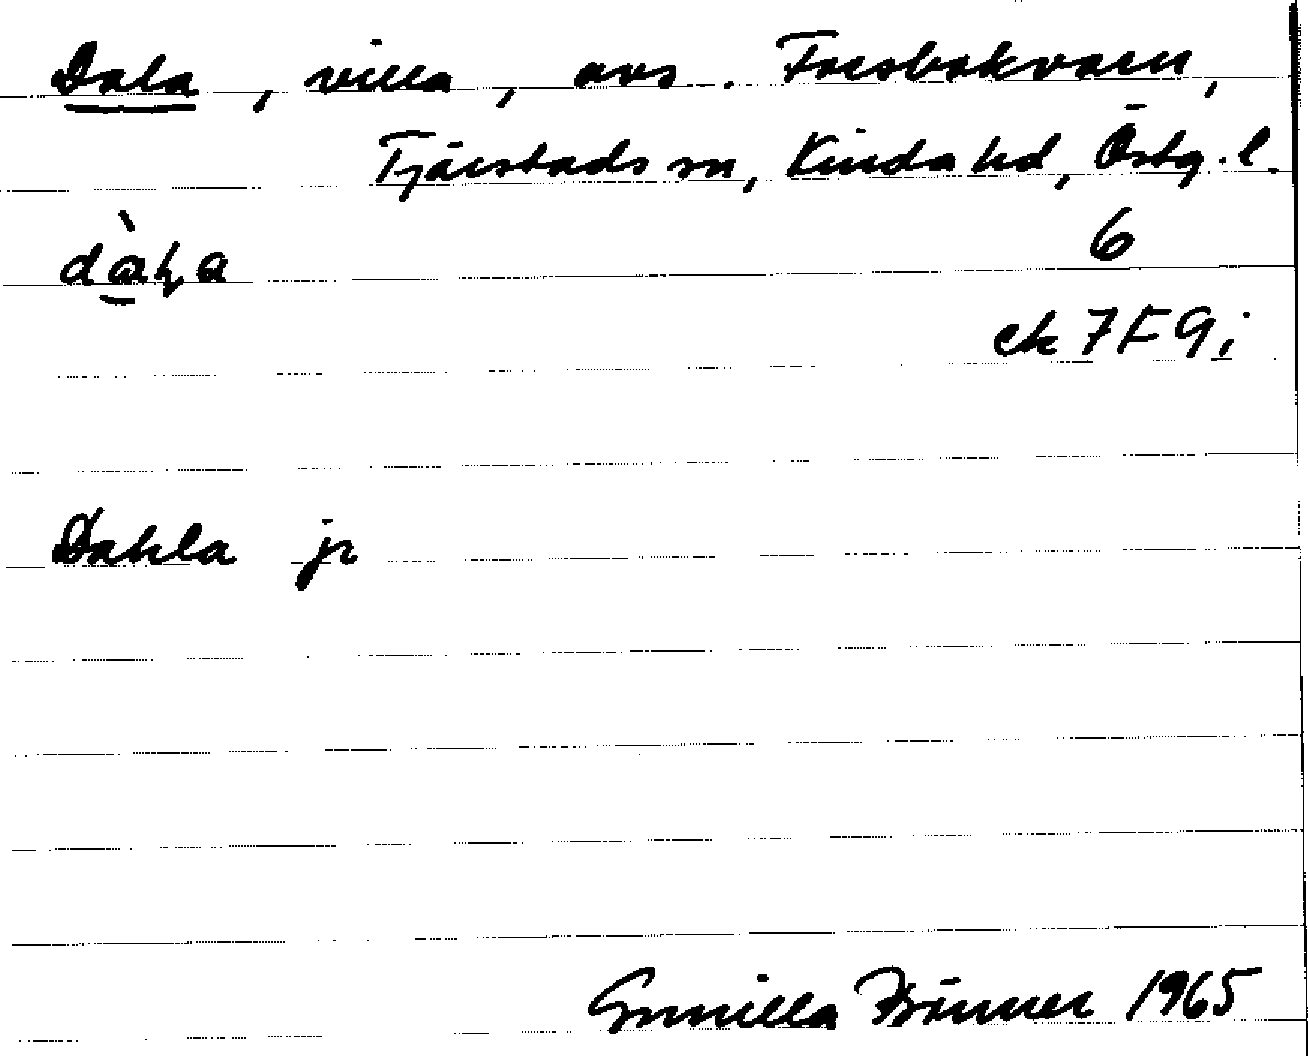 Dala, villa, avs. Forsbokvarn,
Tjärstads sn, Kinda hd, Östg. l.
dàḷa
6
ek 7F9i
Dahla jr
Gunilla 1965